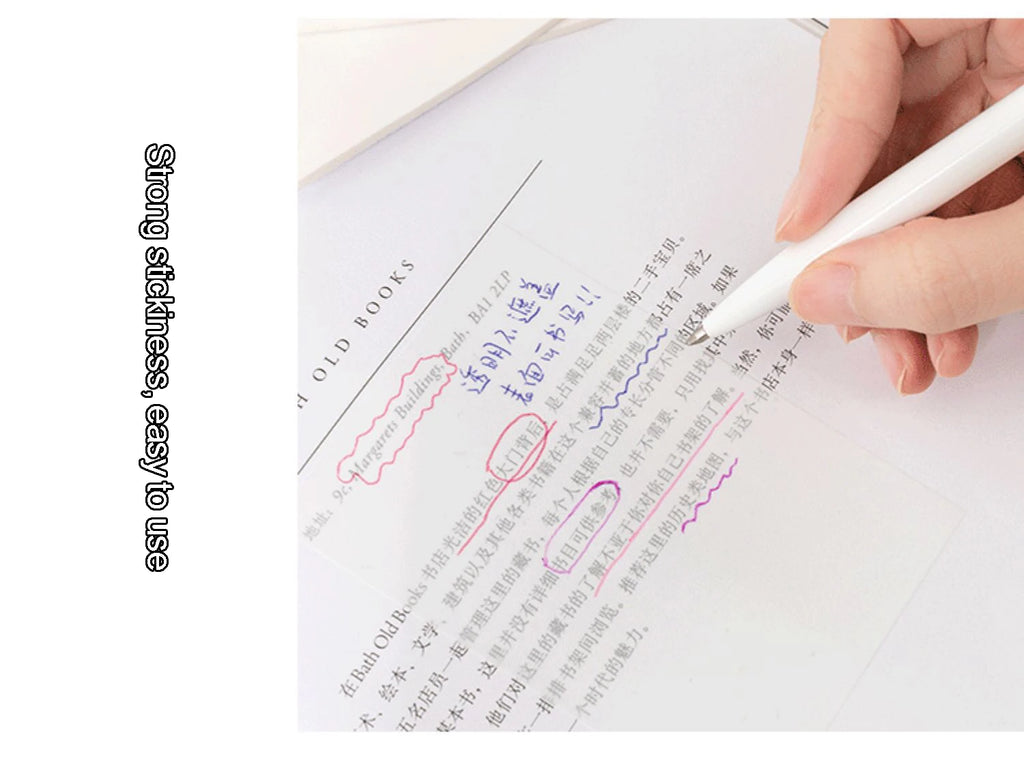 Strong stickiness, easy to use
H OLD BOOKS
地址：9c, Margarets Buildings, Bath, BA1 2LP
透明不遮盖
表面可书写！！
在Bath Old Books 书店光洁的红色大门背后，是占满足足两层楼的二手宝贝。
术、绘本、文学、建筑以及其他各类书籍在这个兼容并蓄的地方都占有一席之
五名店员一起管理这里的藏书，每个人根据自己的专长分管不同的区域。如果
某本书，这里并没有详细书目可供参考，也并不需要，只用找其中
他们对这里的藏书的了解不亚于你对自己书架的了解。当然，你可
一排排书架间浏览。推荐这里的历史类地图，与这个书店本身一样
一个时代的魅力。